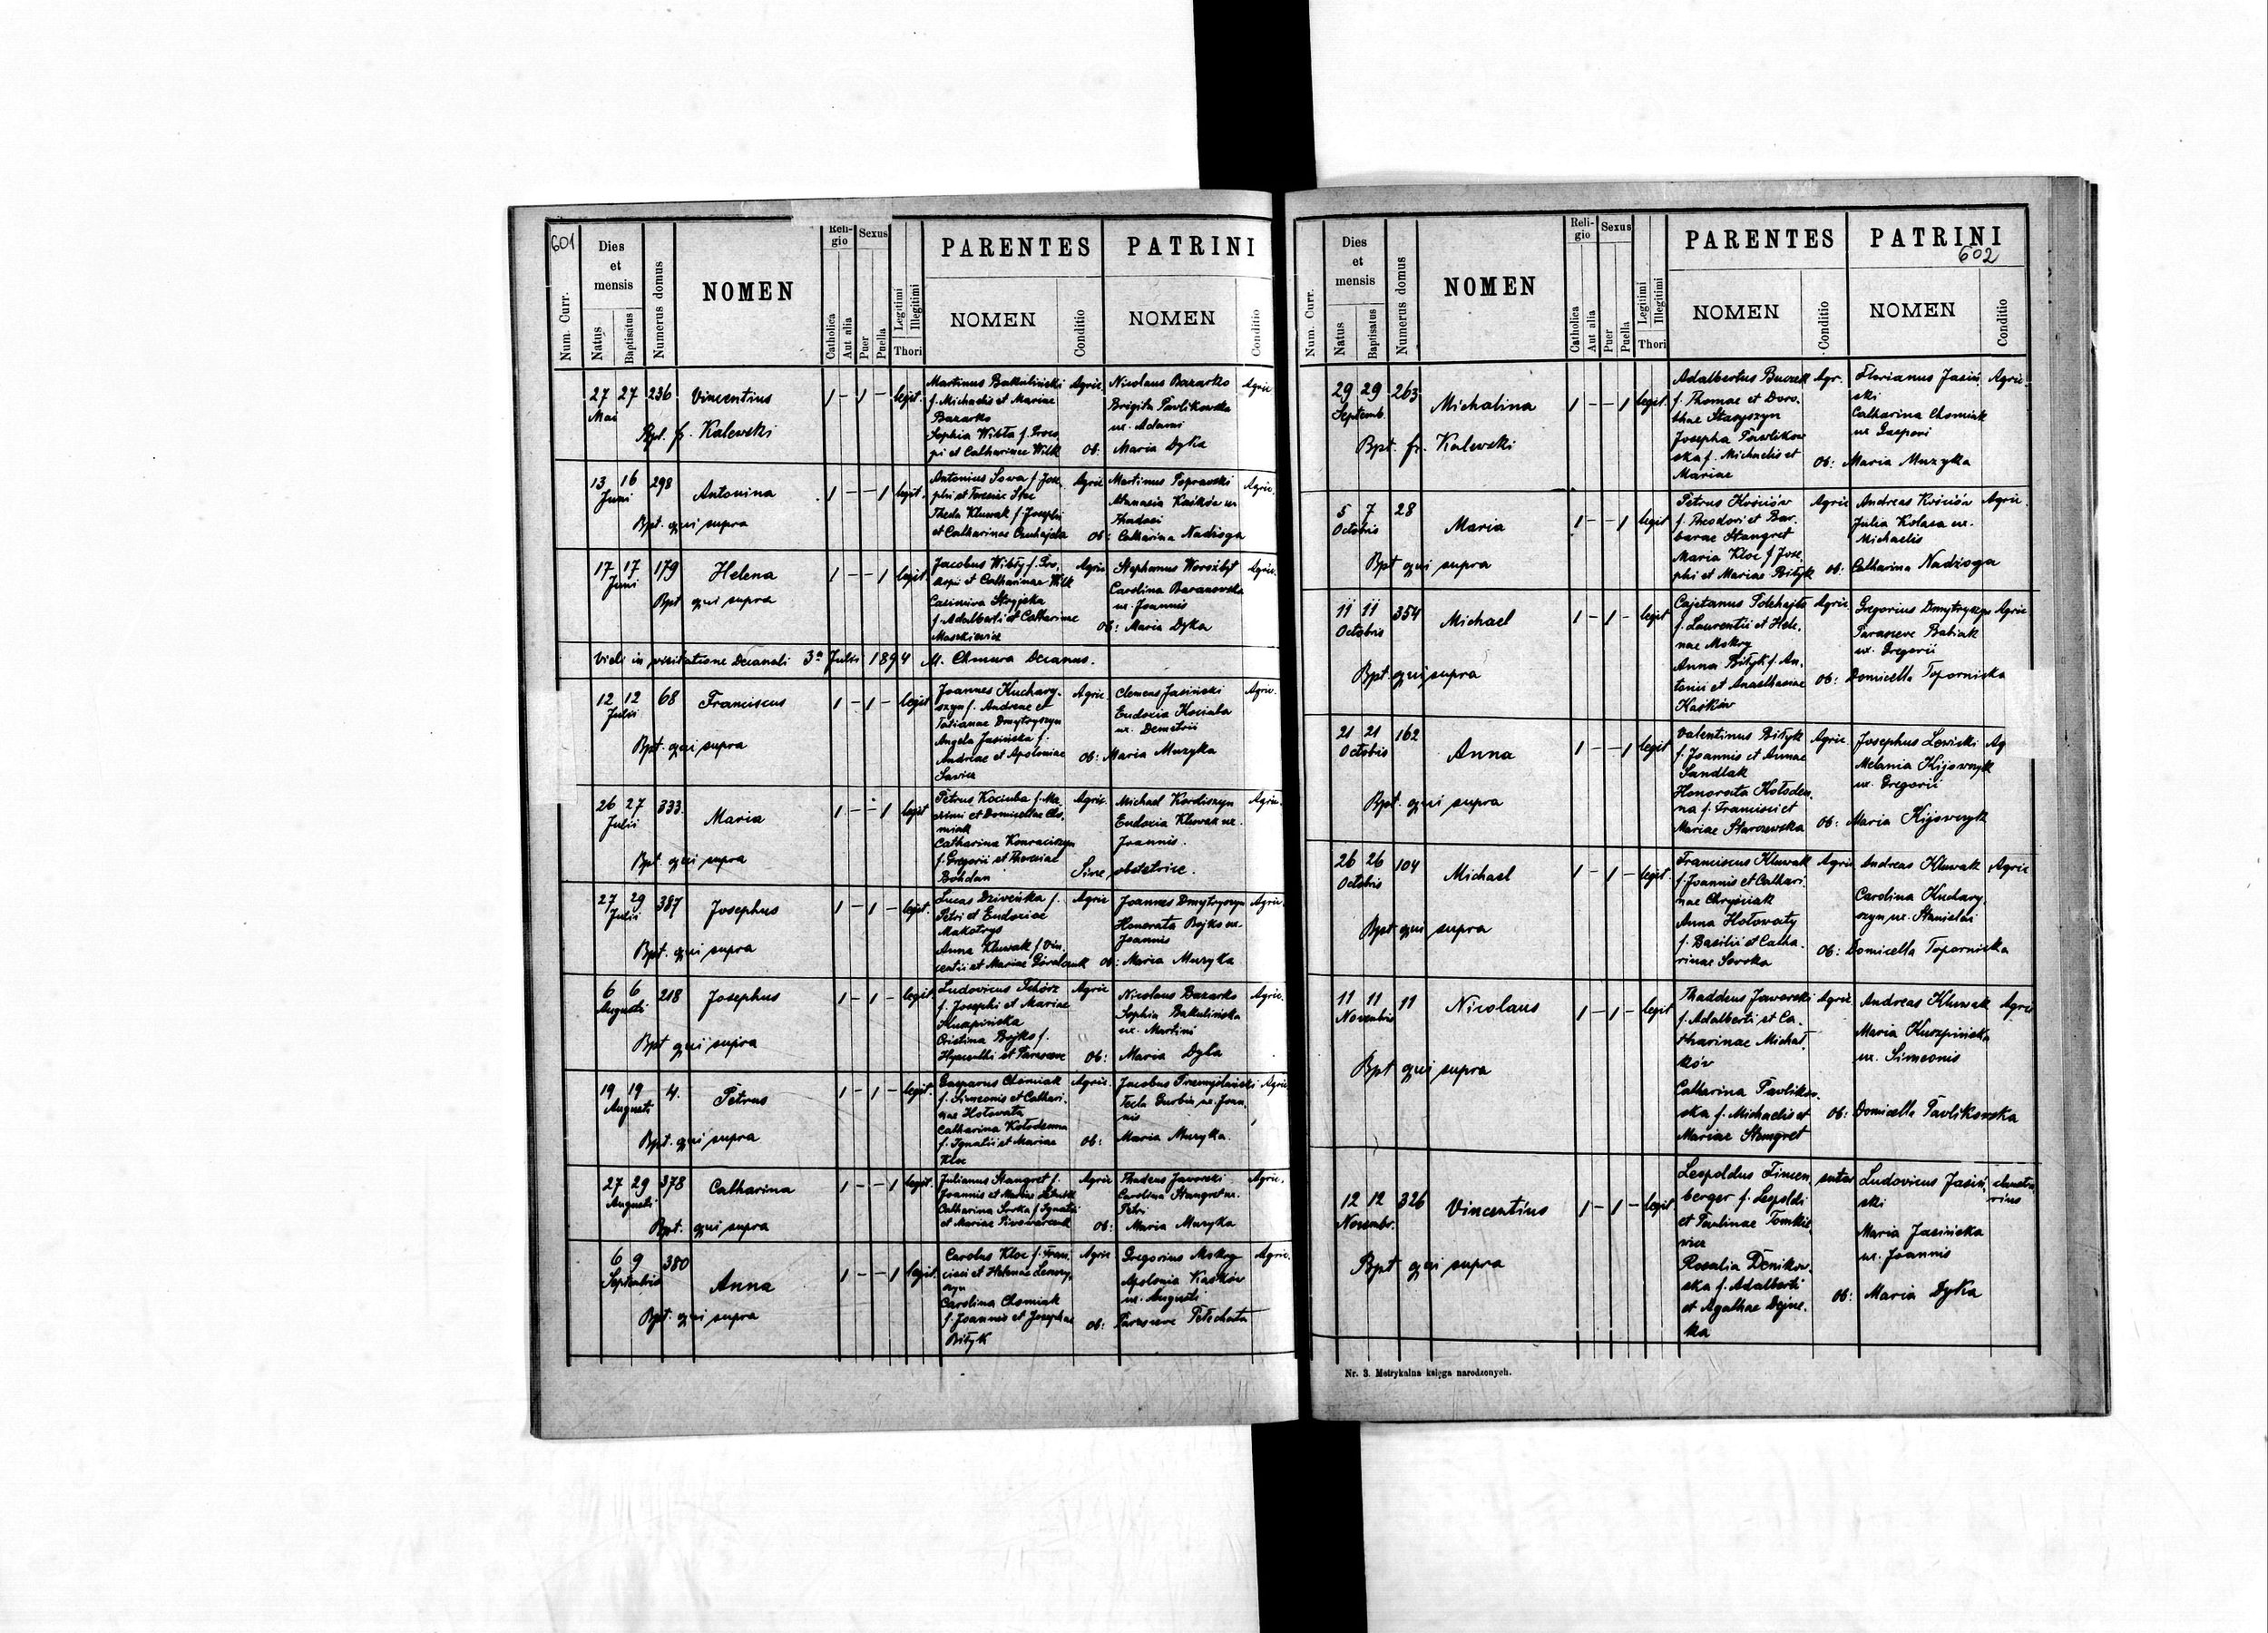 601
Num. Curr.
Dies et mensis
Natus
Baptisatus
Numerus domus
NOMEN
Religio
Catholica
Aut alia
Sexus
Puer
Puella
Legitimi
Illegitimi
Thori
PARENTES
NOMEN
Conditio
PATRINI
NOMEN
Conditio
27 27 236 Vincentius 1 - 1 - legit.
Mai
Bpt. fr. Kalewski
Martinus Bakuliński Agric.
f. Michaelis et Mariae
Bazarko
Sophia Wilk
et Catharinae Wilk
Nicolaus Bazarko Agric
Brigita Pavlikowska
ux. Adami
Ob: Maria Dyka
13 16 298 Antonina 1 - - 1 legit.
Juni
Bpt. qui supra
Antonius Sowa f. Jose Agric
phi et Teresiae
Thecla Kluwak f. Josephi
et Catharinae
Martinus Poprawski Agric.
Atanasia Kaśków ux
Thadaei
Ob: Catharina Nadżoga
17 17 179 Helena 1 - - 1 legit.
Juni
Bpt qui supra
Jacobus Agric
et Catharinae Wilk
Casimira Stryjska
f. Adalberti et Catharinae
Maskiewicz
Stephanus Worożbyt Agric.
Carolina Baranowska
ux. Joannis
Ob: Maria Dyka
Vidi in visitatione Decanali 3a Julii 1894 M. Chmura Decanus.
12 12 68 Franciscus 1 - 1 - legit
Julii
Bpt. qui supra
Joannes Kuchary- Agric
szyn f. Andreae et
Tatianae Dmytryszyn
Angela Jasińska f.
Andreae et Apoloniae
Sawicz
Clemens Jasiński Agric.
Eudoxia Kociuba
ux. Demetrii
Ob: Maria Muzyka
26 27 333 Maria 1 - - 1 legit
Julii
Bpt. qui supra
Petrus Kociuba f. Ma Agric.
ximi et Domicellae Cho
miak
Catharina
f. Gregorii et Theresiae
Bohdan
Michael Kordiszyn Agric.
Eudoxia Kluwak ux.
Joannis.
Sine obstetrice.
27 29 387 Josephus 1 - 1 - legit.
Julii
Bpt. qui supra
Lucas f. Agric
Petri et Eudoxiae
Makotrys
Anna Kluwak f. Vin
centii et Mariae
Joannes Dmytryszyn Agric.
Honorata Bojko ux.
Joannis
Ob: Maria Muzyka
6 6 218 Josephus 1 - 1 - legit
Augusti
Bpt qui supra
Ludovicus Tchórz Agric
f. Josephi et Mariae
Kluszpińska
Cristina Bojko f.
Hyacinthi et Parasceve
Nicolaus Bazarko Agric.
Sophia Bakulińska
ux. Martini
Ob: Maria Dyla
19 19 4. Petrus 1 - 1 - legit.
Augusti
Bpt. qui supra
Gasparus Chomiak Agric.
f. Simeonis et Cathari
nae Hołowata
Catharina Kołodenna
f. Ignatii et Mariae
Kloc
Jacobus Przemyślański Agric
Tecla ux. Joan
nis
Ob: Maria Muzyka.
27 29 378 Catharina 1 - - 1 legit.
Augusti
Bpt. qui supra
Julianus Stangret f. Agric
Joannis et Mariae
Catharina Sorka f. Ignatii
et Mariae Piwowarczuk
Thadeus Javorski Agric.
Carolina Stangret ux.
Petri
Ob: Maria Muzyka
6 9 380 Anna 1 - - 1 legit.
Septembris
Bpt. qui supra
Carolus Kloc f. Fran Agric
cisci et Helenae
Carolina Chomiak
f. Joannis et Josephae
Bityk
Gregorius Mokry Agric.
Apolonia Kaśków
ux. Augusti
Ob: Parasceve Pełechata
602
Num. Curr.
Dies et mensis
Natus
Baptisatus
Numerus domus
NOMEN
Religio
Catholica
Aut alia
Sexus
Puer
Puella
Legitimi
Illegitimi
Thori
PARENTES
NOMEN
Conditio
PATRINI
NOMEN
Conditio
29 29 263 Michalina 1 - - 1 legit.
Septemb.
Bpt. fr. Kalewski
Adalbertus Buczek Agr.
f. Thomae et Doro
theae Staryszyn
Josepha Pawlikow
ska f. Michaelis et
Mariae
Florianus Jasiń Agric.
ski
Catharina Chomiak
ux Gaspari
Ob: Maria Muzyka
5 7 28 Maria 1 - - 1 legit
Octobris
Bpt qui supra
Petrus Kościów Agric
f. Theodori et Bar
barae Stangret
Maria Kloc f Jose
phi et Mariae Bityk
Andreas Kościów Agric
Julia Kolasa ux.
Michaelis
ob: Catharina Nadżoga
11 11 354 Michael 1 - 1 - legit
Octobris
Bpt. qui supra
Cajetanus Agric.
f. Laurentii et Hele
nae Mokry
Anna Bityk f. An
tonii et Anasthasiae
Kaśków
Gregorius Dmytryszyn Agric
Parasceve Babiak
ux. Gregorii
Ob: Domicella Topornicka
21 21 162 Anna 1 - - 1 legit
Octobris
Bpt. qui supra
Valentinus Bityk Agric.
f. Joannis et Annae
Sandlak
Honorata Kołoden
na f. Francisci et
Mariae Starozewska
Josephus Lewicki Ag
Melania Kijowczyk
ux. Gregorii
Ob: Maria Kijowczyk
26 26 104 Michael 1 - 1 - legit.
Octobris
Bpt qui supra
Franciscus Kluwak Agric
f. Joannis et Cathari
nae Chryściak
Anna Hołowaty
f. Basilii et Catha
rinae Soroka
Andreas Kluwak Agric
Carolina Kuchary
szyn ux. Stanislai
Ob: Domicella Topornicka
11 11 11 Nicolaus 1 - 1 - legit
Novembris
Bpt qui supra
Thaddeus Jaworski Agric.
f. Adalberti et Ca
tharinae Michał
ków
Catharina Pavliko
ska f. Michaelis et
Mariae Stangret
Andreas Kluwak Agric
Maria Kluszpińska
ux. Simeonis
ob: Domicella Pavlikowska
12 12 326 Vincentius 1 - 1 - legit
Novembr.
Bpt qui supra
Leopoldus Timen sutor
berger f. Leopoldi
et Paulinae Tomkie
wicz
Rosalia Denikow
ska f. Adalberti
et Agathae Dejne
ka
Ludovicus Jasiń
ski
Maria Jasińska
ux. Joannis
Ob: Maria Dyka
Nr. 3. Metrykalna księga narodzonych.